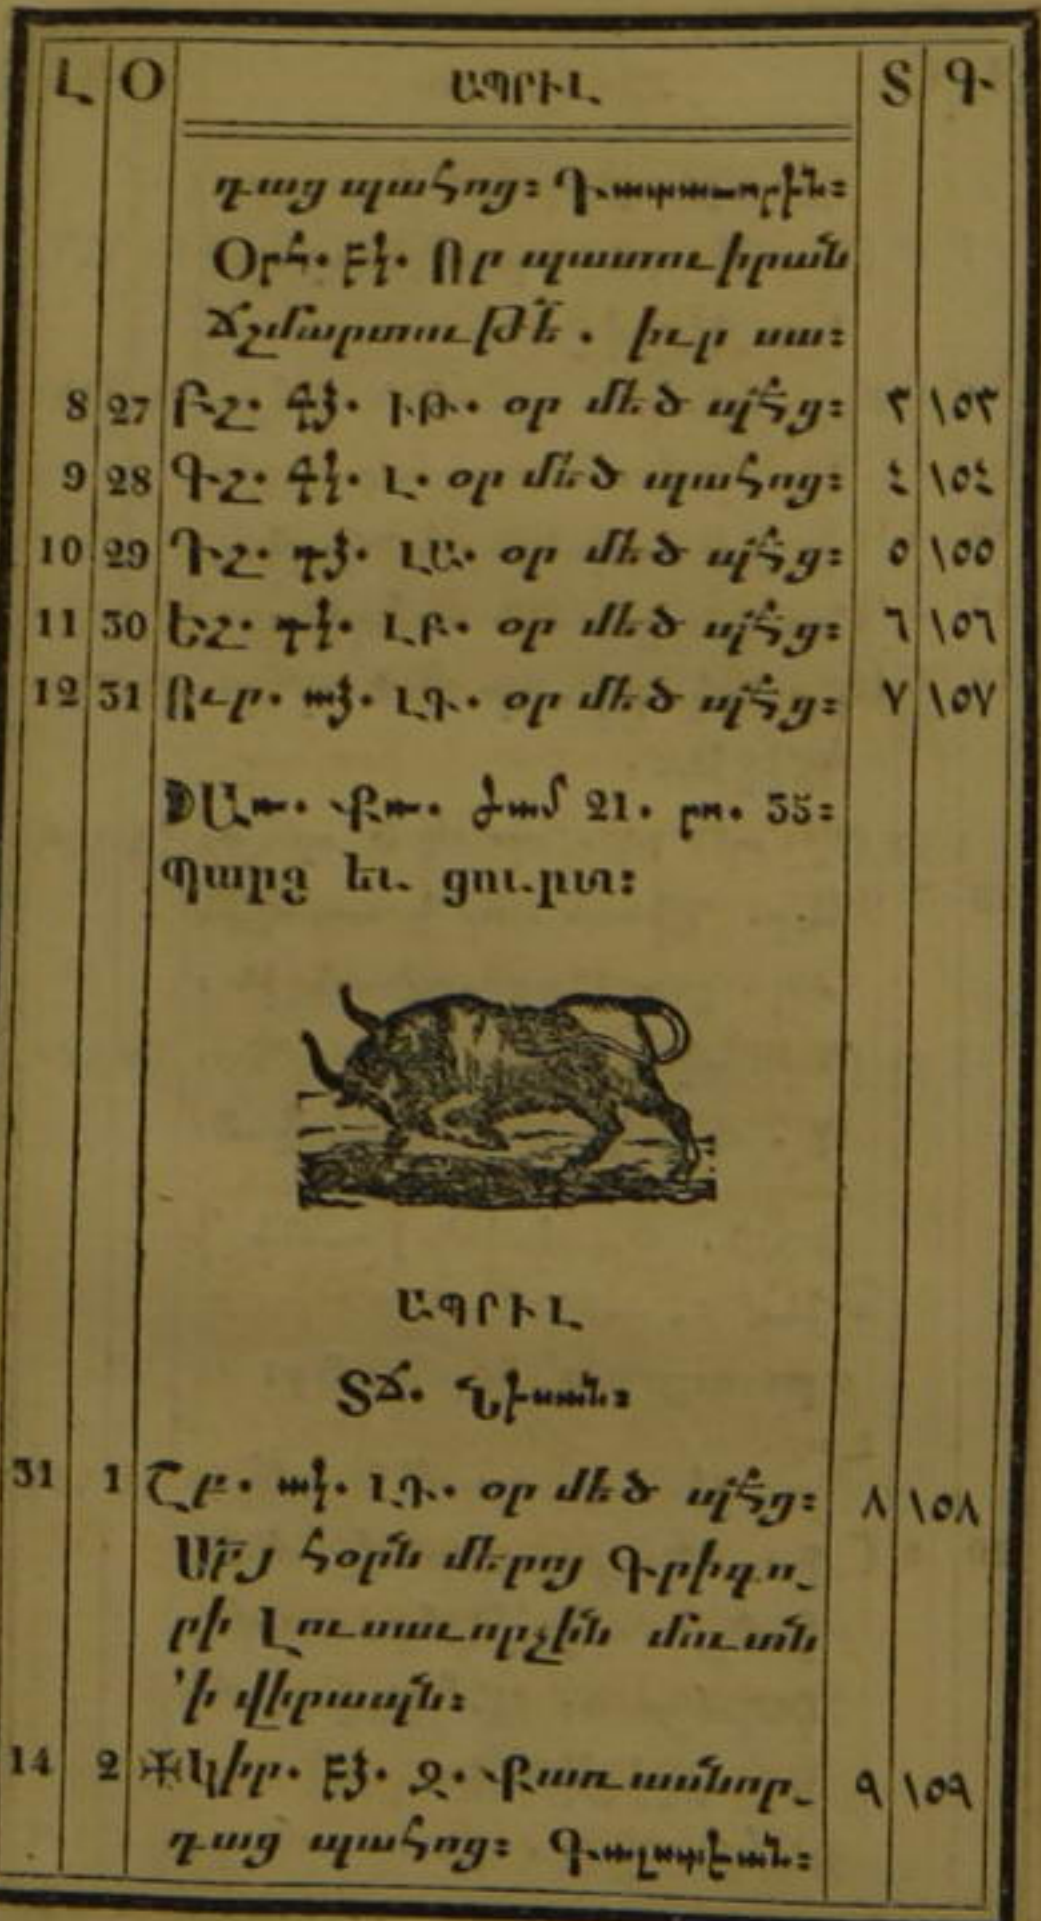 Լ Օ ԱՊՐԻԼ Տ Գ
դաց պահոց։
Օրհ. բկ. Որ պատուիրան
Ճշմարտութե՟. իւր սա։
8 27 Բշ. գձ. ԻԹ. օր մեծ պհ՟ց։ ٣ ١٥٣
9 28 Գշ. գկ. Լ. օր մեծ պահոց։ ٤ ١٥٤
10 29 Դշ. դձ. ԼԱ. օր մեծ պհ՟ց։ ٥ ١٥٥
11 30 Եշ. դկ. ԼԲ. օր մեծ պհ՟ց։ ٦ ١٥٦
12 31 Ուր. աձ. ԼԳ. օր մեծ պհ՟ց։ ٧ ١٥٧
ժամ 21. րո. 35։
Պարզ եւ ցուրտ։
ԱՊՐԻԼ
ՏՃ. Նիսան։
31 1 Շբ. ակ. ԼԴ. օր մեծ պհ՟ց։ ٨ ١٥٨
Սրբ՟յ հօրն մերոյ Գրիգո-
րի Լուսաւորչին մուտն
՚ի վիրապն։
14 2 ✠Կիր. բձ. Զ. Քառասնոր-
դաց պահոց։ ٩ ١٥٩